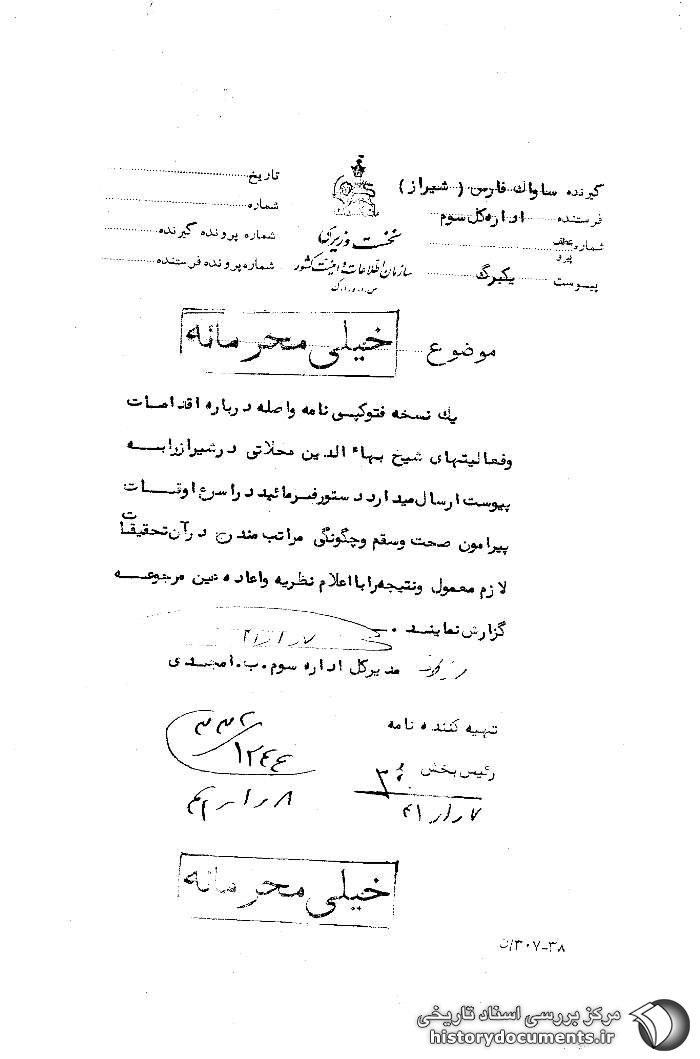 گیرنده ساواک فارس (شیراز)
فرستنده اداره کل سوم
شماره عطف پیرو
پیوست یکبرگ
نخست وزیری
سازمان اطلاعات و امنیت کشور
س.ا.و.ا.ک
تاریخ
شماره
شماره پرونده گیرنده
شماره پرونده فرستنده
موضوع
خیلی محرمانه
یک نسخه فتوکپی نامه واصله درباره اقدامات
وفعالیتهای شیخ بهاء الدین محلاتی درشیراز رابه
پیوست ارسال میدارد دستورفرمائید دراسرع اوقات
پیرامون صحت وسقم وچگونگی مراتب مندرج درآن تحقیقات
لازم معمول ونتیجه رابااعلام نظریه واعاده عین مرجوعه
گزارش نمایند.
۷ر۱ر۴۱
مدیرکل اداره سوم ب.امجدی
تهیه کننده نامه
رئیس بخش
۷ر۱ر۴۱
۸ر۱ر
خیلی محرمانه
۳۰۷-۳۸/ن
مرکز بررسی اسناد تاریخی
historydocuments.ir